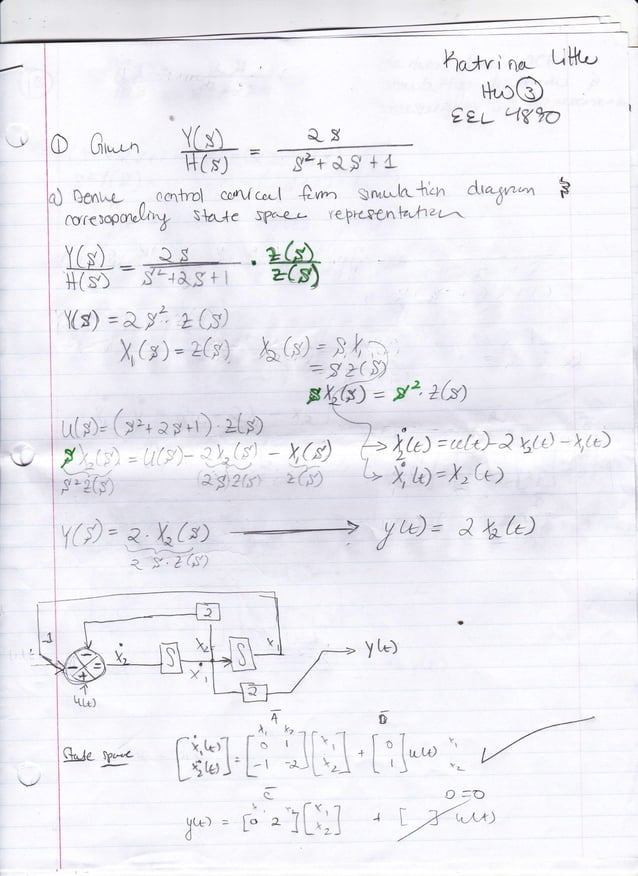 Katrina Little
HW ③
EEL 4890
① Given Y(s)/H(s) = 2s/(s² + 2s + 1)
a) Derive control canical form simulation diagram &
corresoponding state space representation
Y(s)/H(s) = 2s/(s²+2s+1) · Z(s)/Z(s)
Y(s) = 2s² · Z(s)
X₁(s) = Z(s) X₂(s) = s X₁
= s Z(s)
s X₂(s) = s² · Z(s)
U(s) = (s² + 2s + 1) · Z(s)
s X₂(s) = U(s) - 2X₂(s) - X₁(s) → ẋ₂(t) = u(t) - 2x₂(t) - x₁(t)
s² Z(s) (2s)Z(s) Z(s) ↳ ẋ₁(t) = X₂(t)
Y(s) = 2 · X₂(s) → y(t) = 2 x₂(t)
2 s · Z(s)
2
1 ẋ₂ ∫ x₂ ẋ₁ ∫ x₁ → y(t)
- - = +
u(t) 2
A B
State space [ẋ₁(t) ẋ₂(t)] = [0 1 -1 -2] [x₁ x₂] + [0 1] u(t) x₁ x₂
C 0=0
y(t) = [0 2] [x₁ x₂] + [ ] u(t)